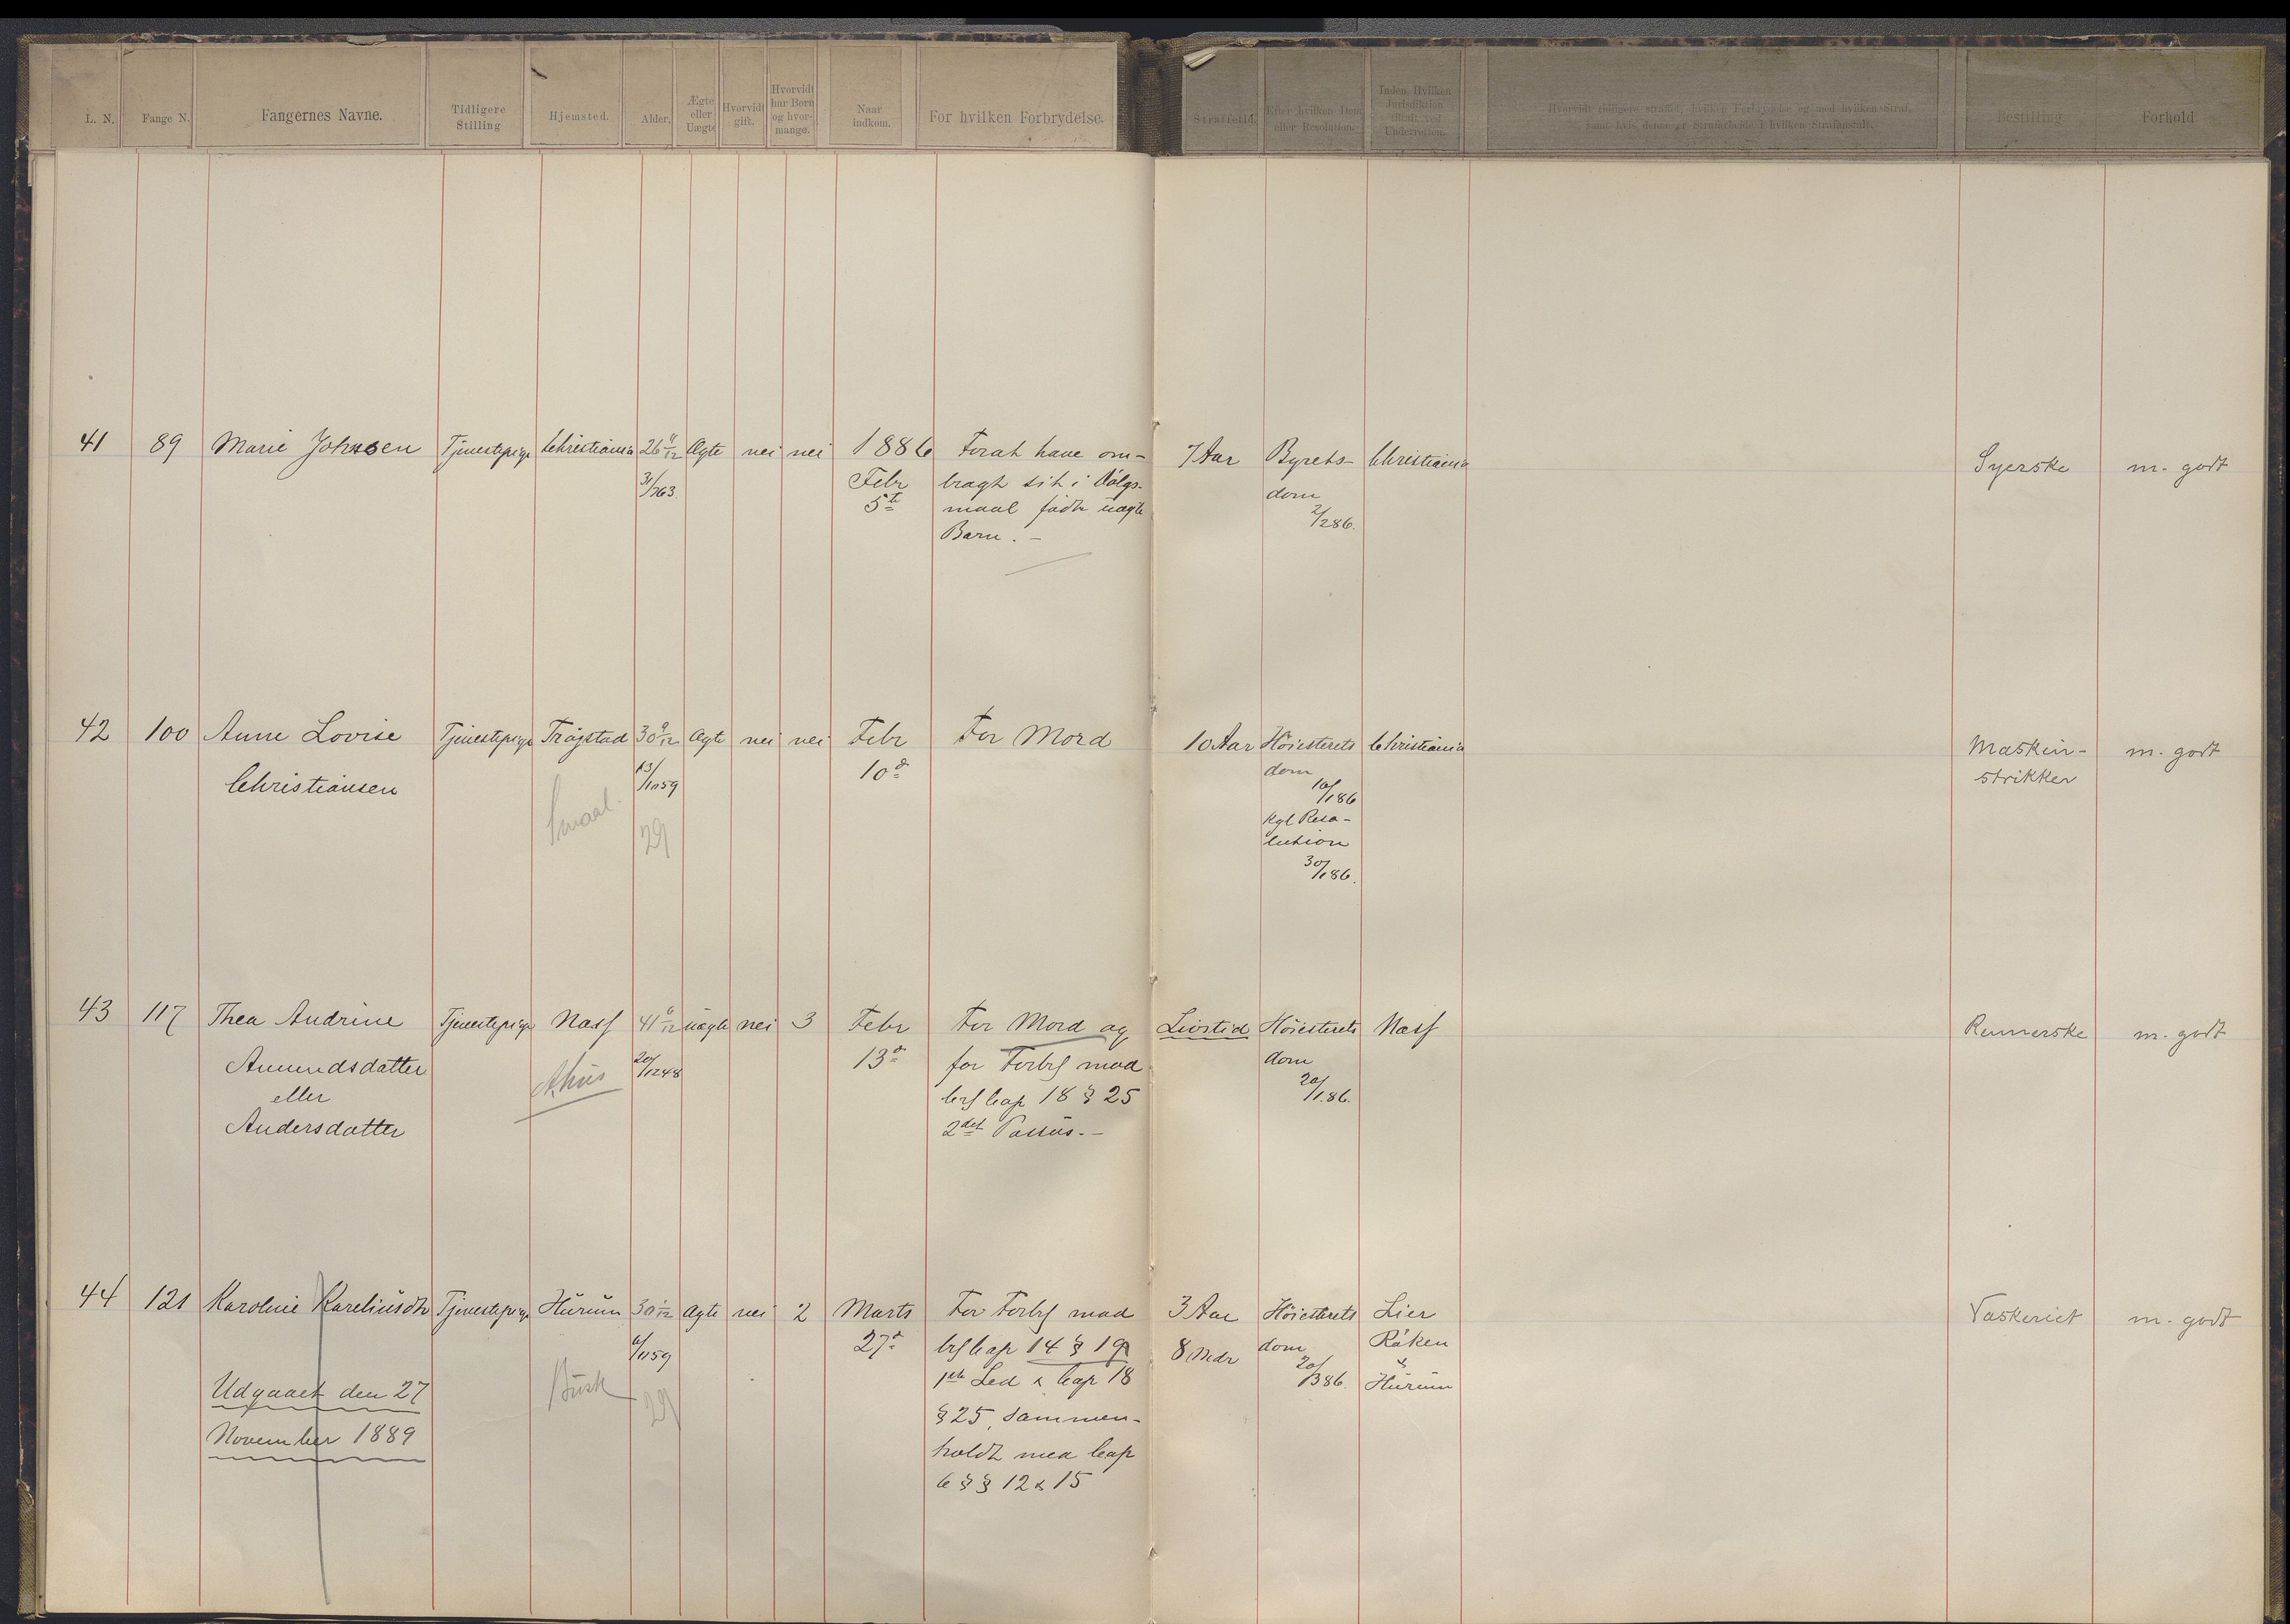 L. N.
Fange N.
Fangernes Navne.
Tidligere
Stilling
Hjemsted.
Alder.
Ægte
eller
Uægte
Hvorvidt
gift.
Hvorvidt
har Børn
og hvor-
mange.
Naar
indkom.
For hvilken Forbrydelse.
Straffetid.
Efter hvilken Dom
eller Resolution.
Inden Hvilken
Jurisdiktion
tiltalt ved
Underretten.
Hvorvidt tidligere straffet, hvilken Forbrydelse og med hvilken Straf,
samt hvis denne er Strafarbeide i hvilken Strafanstalt.
Bestilling
Forhold
41
89
Marie Johnsen
Tjenestepige
Christiania
26 11/12
31/763
Ægte
nei
nei
1886
Febr
5te
Forat have om-
bragt sit i Dølgs-
maal født uægte
Barn. –
7 Aar
Byrets-
dom
2/286.
Christiania
Syerske
m. godt
42
100
Anne Lovise
Christiansen
Tjenestepige
Trøgstad
Smaal.
30 9/12
13/1059
29
Ægte
nei
nei
Febr
10d
For Mord
10 Aar
Høiesterets
dom
16/186
Kgl Reso-
lution
30/186.
Christiania
Maskin-
strikker
m. godt
43
117
Thea Andrine
Amundsdatter
eller
Andersdatter
Tjenestepige
Næss
Ahus
41 6/12
20/1248
uægte
nei
3
Febr
13d
For Mord og
for Forbr mod
Crl Cap 18 § 25
2det Passus. –
Livstid
Høiesterets
dom
20/1.86.
Næss
Rennerske
m. godt
44
121
Karoline Kareliusdtr
Udgaaet den 27
November 1889
Tjenestepige
Hurum
Busk
30 1/12
6/1159
29
Ægte
nei
2
Marts
27d
For Forbr mod
Crl Cap 14 § 19
1ste Led & Cap 18
§ 25, sammen-
holdt med Cap
6 § § 12 & 15
3 Aar
8 Mdr
Høiesterets
dom
20/386.
Lier
Røken
&
Hurum
Vaskeriet
m. godt